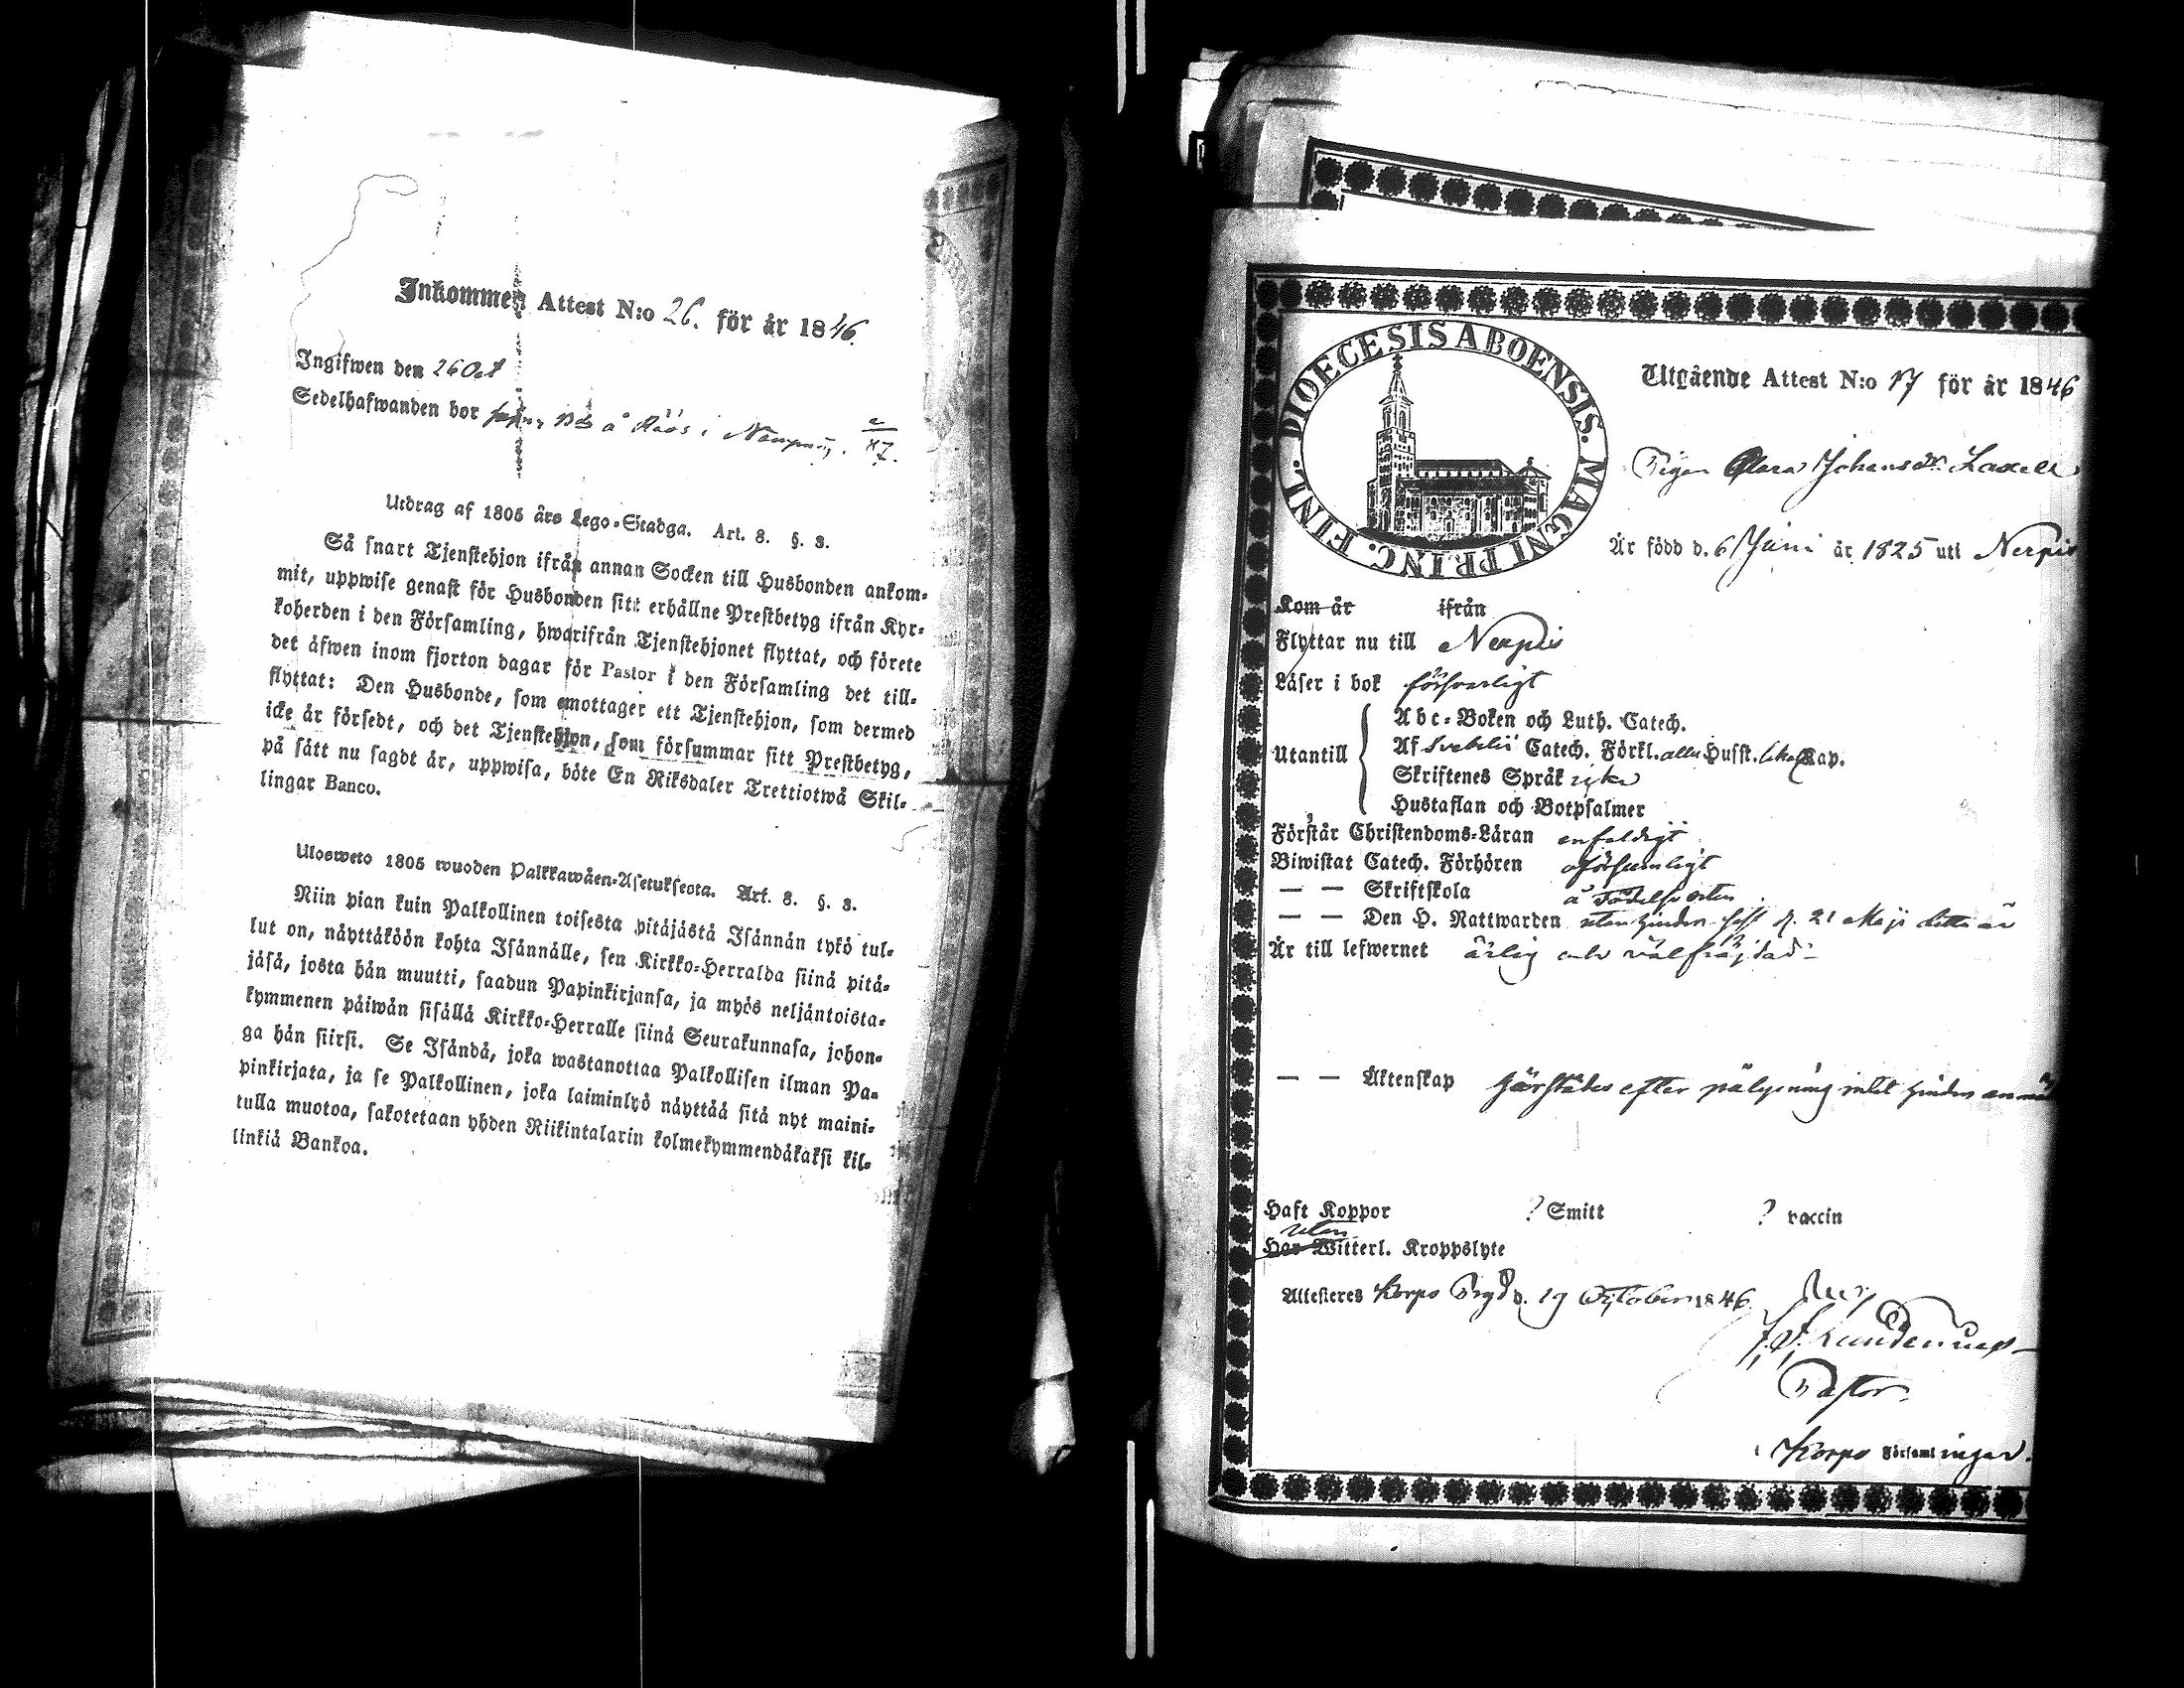 Inkommen Attest N:o 26. för år 1846.
Ingifwen den 26 Oct
Sedelhafwanden bor å Råås i Nerpis.
87.
Utdrag af 1805 års Lego-Stadga. Art. 8. §. 3.
Så snart Tjenstehjon ifrån annan Socken till Husbonden ankom-
mit, uppwise genast för Husbonden sitt erhållne Prestbetyg ifrån Kyr-
koherden i den Församling, hwarifrån Tjenstehjonet flyttat, och förete
det äfwen inom fjorton dagar för Pastor i den Församling det till-
flyttat: Den Husbonde, som emottager ett Tjenstehjon, som dermed
icke är försedt, och det Tjenstehjon, som försummar sitt Prestbetyg,
på sätt nu sagdt är, uppwisa, böte En Riksdaler Trettiotwå Skil-
lingar Banco.
Ulosweto 1805 wuoden Palkkawäen-Asetuksesta. Art. 8. §. 3.
Niin pian kuin Palkollinen toisesta pitäjästä Isännän tykö tul-
lut on, näyttäköön kohta Isännälle, sen Kirkko-Herralda siinä pitä-
jäsä, josta hän muutti, saadun Papinkirjansa, ja myös neljäntoista-
kymmenen päiwän sisällä Kirkko-Herralle siinä Seurakunnasa, johon-
ga hän siirsi. Se Isändä, joka wastanottaa Palkollisen ilman Pa-
pinkirjata, ja se Palkollinen, joka laiminlyö näyttää sitä nyt maini-
tulla muotoa, sakotetaan yhden Riikintalarin kolmekymmendäkaksi kil-
linkiä Bankoa.
DIOECESIS ABOENSIS. MAGNI PRINC. FINL.
Utgående Attest N:o 17 för år 1846
Pigan Clara Johansdr. Laxell
Är född d. 6 Juni år 1825 uti Nerpis
Kom år ifrån
Flyttar nu till Nerpis
Läser i bok försvarligt
Utantill
Abc-Boken och Luth. Catech.
Af Svebelii Catech. Förkl. alla Husst. lika Kap.
Skriftenes Språk
Hustaflan och Botpsalmer
Förstår Christendoms-Läran enfaldigt
Biwistat Catech. Förhören oförsumligt
— — Skriftskola å Födelse orten
— — Den H. Nattwarden utan hinder sist d. 21 Maji detta år
Är till lefwernet ärlig och välfräjdad
— — Äktenskap härstädes efter pålysning intet hinder anmält
Haft Koppor ? Smitt ? vaccin
utan
Har Witterl. Kroppslyte
Attesteres Korpo Prgd d. 19 October 1846
Pastor
i Korpo Församlingar.